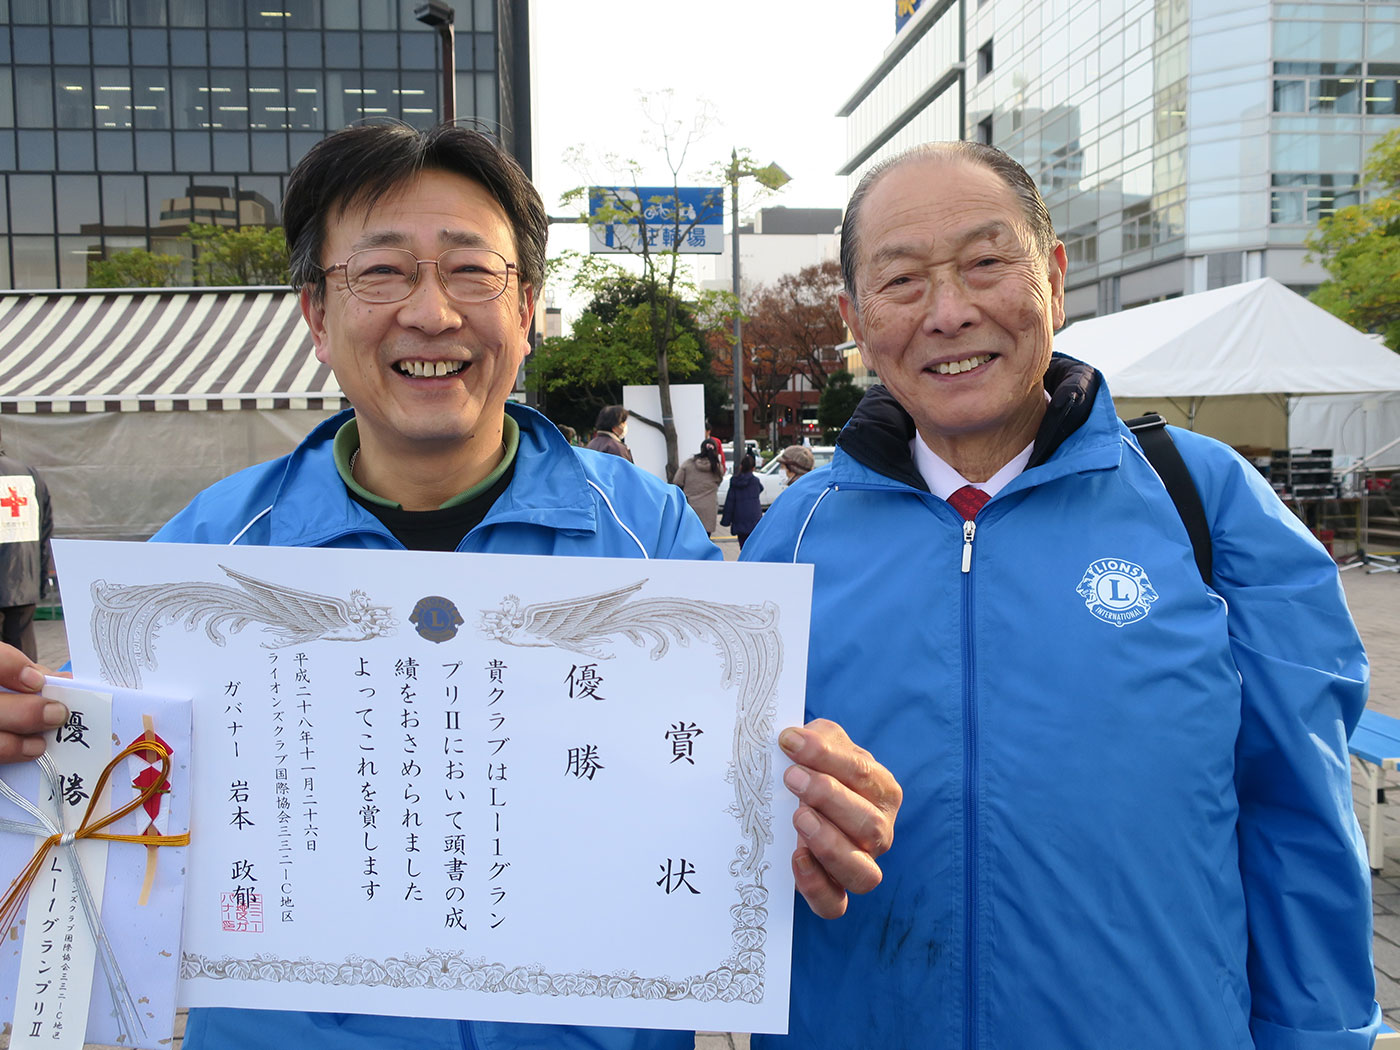 駐輪場
LIONS
L
INTERNATIONAL
L
賞状
優勝
貴クラブはL－1グラン
プリⅡにおいて頭書の成
績をおさめられました
よってこれを賞します
平成二十八年十一月二十六日
ライオンズクラブ国際協会三三二－C地区
ガバナー 岩本 政郁
優勝
ンズクラブ国際協会三三二－C地区
L－1グランプリⅡ